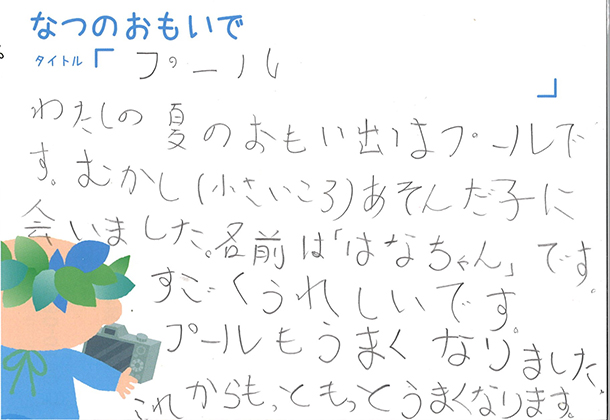 なつのおもいで
タイトル「プール」
わたしの夏のおもい出はプールで
す。むかし(小さいころ)あそんだ子に
会いました。名前は「はなちゃん」です。
すごくうれしいです。
プールもうまくなりました、
これからもっともっとうまくなります。